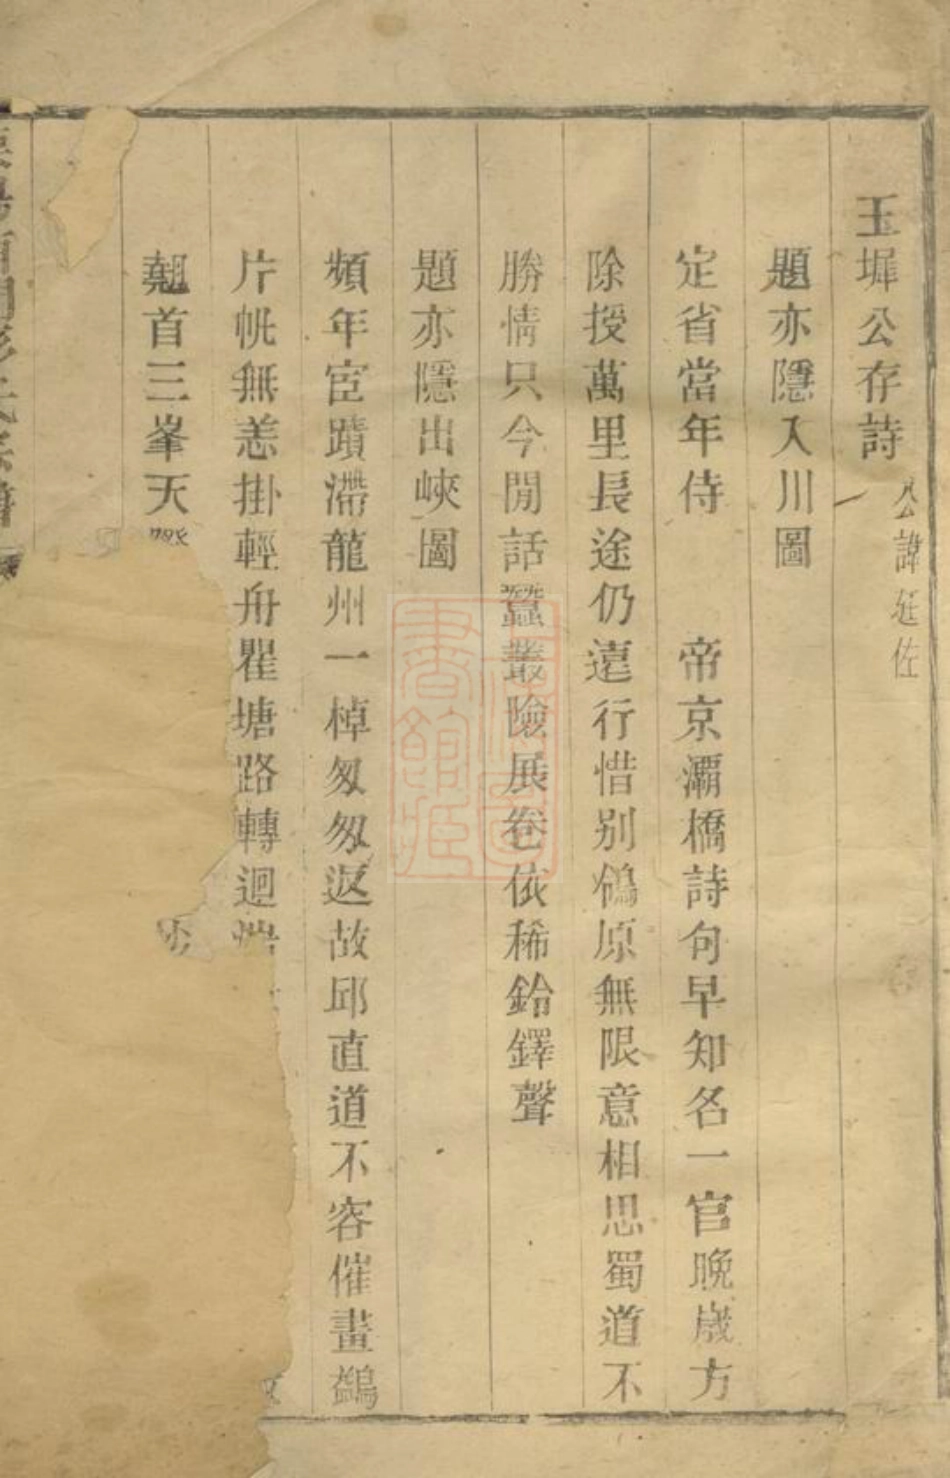 玉墀公存詩
公諱廷佐
題亦隱入川圖
定省當年侍 帝京灞橋詩句早知名一官晚歲方
除授萬里長途仍遠行惜別鴒原無限意相思蜀道不
勝情只今閒話蠶叢險展卷依稀鈴鐸聲
題亦隱出峽圖
頻年宦蹟滯龍州一棹匆匆返故邱直道不容催畫鷁
片帆無恙掛輕舟瞿塘路轉迴
翹首三峯天